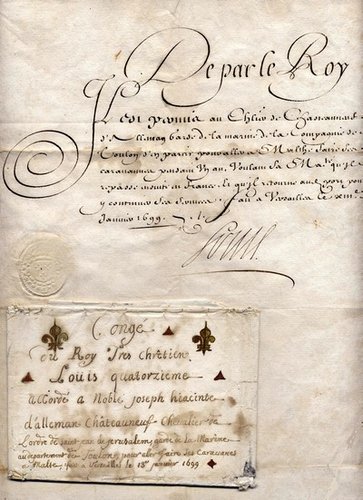 De par le Roy
Il est permis au Chler de Chasteauneuf
d'Allemaq garde de la marine de la Compagnie de
Toulon d'y partir pour aller a Malthe faire ses
caravannes pendant Un an, Voulant Sa Maté qu'il
repasse ensuite en France, Et qu'il retourne aud. port pour
y continuer ses services. Fait a Versailles le
Janvier 1699.
Louis
Congé
du Roy Tres Chrétien
Louis quatorzieme
accordé à Noble Joseph hiacinte
d'alleman Châteauneuf Chevalier de
L'ordre de saint Jean de Jerusalem, garde de la Marine
au departement de Toulon, pour aler faire ses Caravanes
a Malte, fait a Versailles le 18e janvier 1699